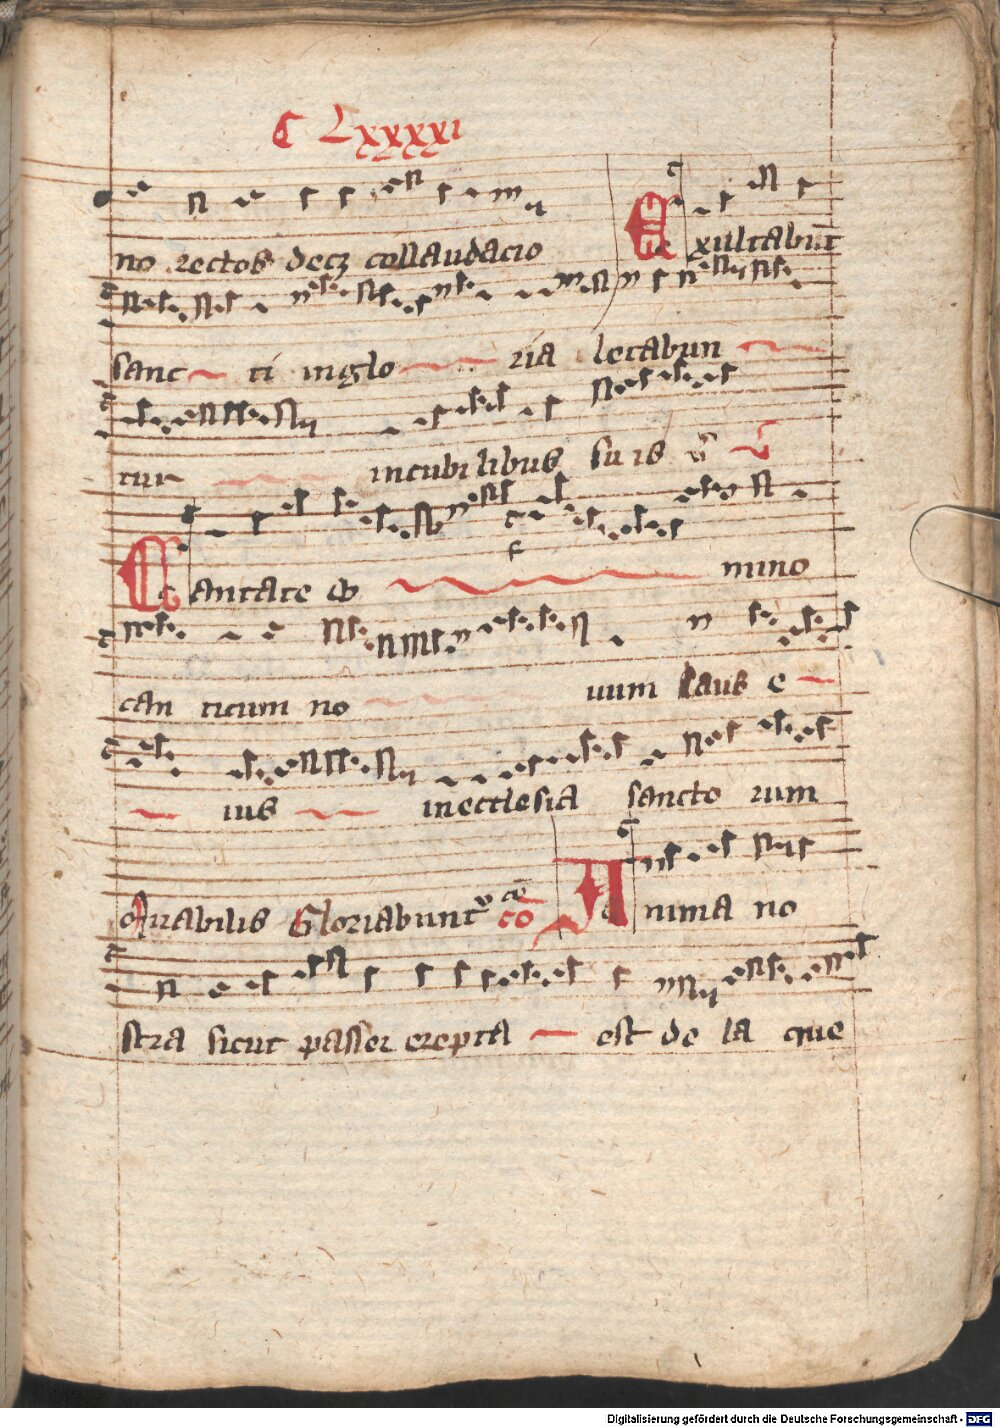 C Lxxxxı
no rectos decz collaudacio Exultabūt
sanc ti inglo ria letabun
tur incubilibus su is
Cantate do mino
can ticum no uum Laus e
ius inecclesia sancto rum
Mirabilis Gloriabunt co Anima no
stra sicut passer erepta est de la que
Digitalisierung gefördert durch die Deutsche Forschungsgemeinschaft - DFG